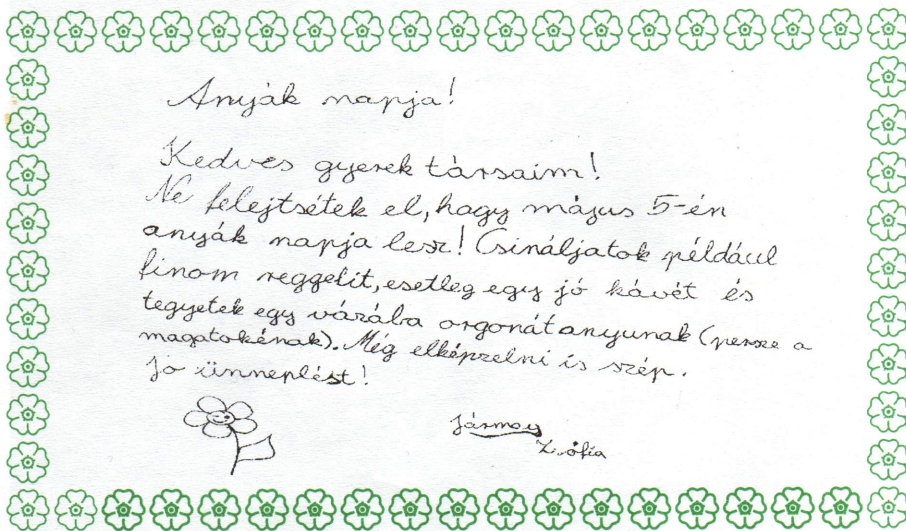 Anyák napja!
Kedves gyerek társaim!
Ne felejtsétek el, hagy május 5-én
anyák napja lesz! Csináljatok például
finom reggelit, esetleg egy jó kávét és
tegyetek egy vázába orgonát anyunak (persze a
magatokénak). Még elképzelni is szép.
Jó ünneplést!
Jármay
Zsófia